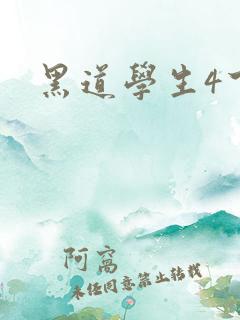 黑道學生4
阿窩
未经同意禁止转载